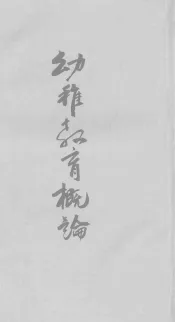 幼稚教育概論